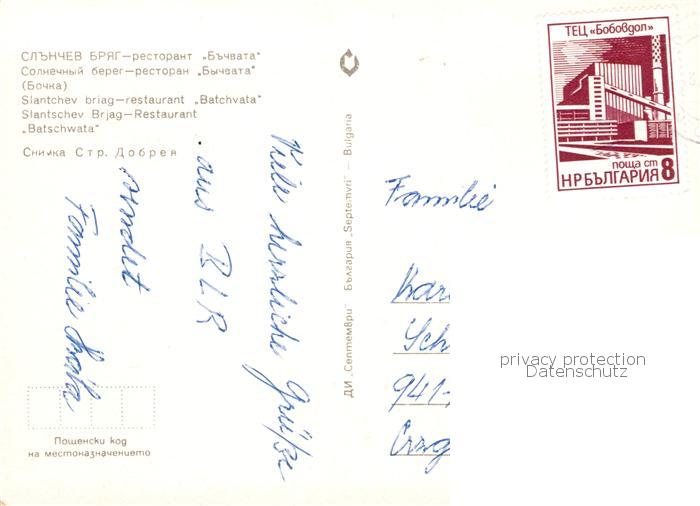 СЛЪНЧЕВ БРЯГ—ресторант „Бъчвата“
Солнечный берег—ресторан „Бычвата“
(Бочка)
Slantchev briag—restaurant „Batchvata“
Slantschev Brjag—Restaurant
„Batschwata“
Снимка Стр. Добрев
Viele herzliche Grüße
aus
sendet
Familie
Пощенски код
на местоназначението
ДИ „Септември“ България „Septemvri“ — Bulgaria
ТЕЦ «Бобовдол»
поща ст 8
НРБЪЛГАРИЯ
Familie
Kar
Sch
941
privacy protection
Datenschutz